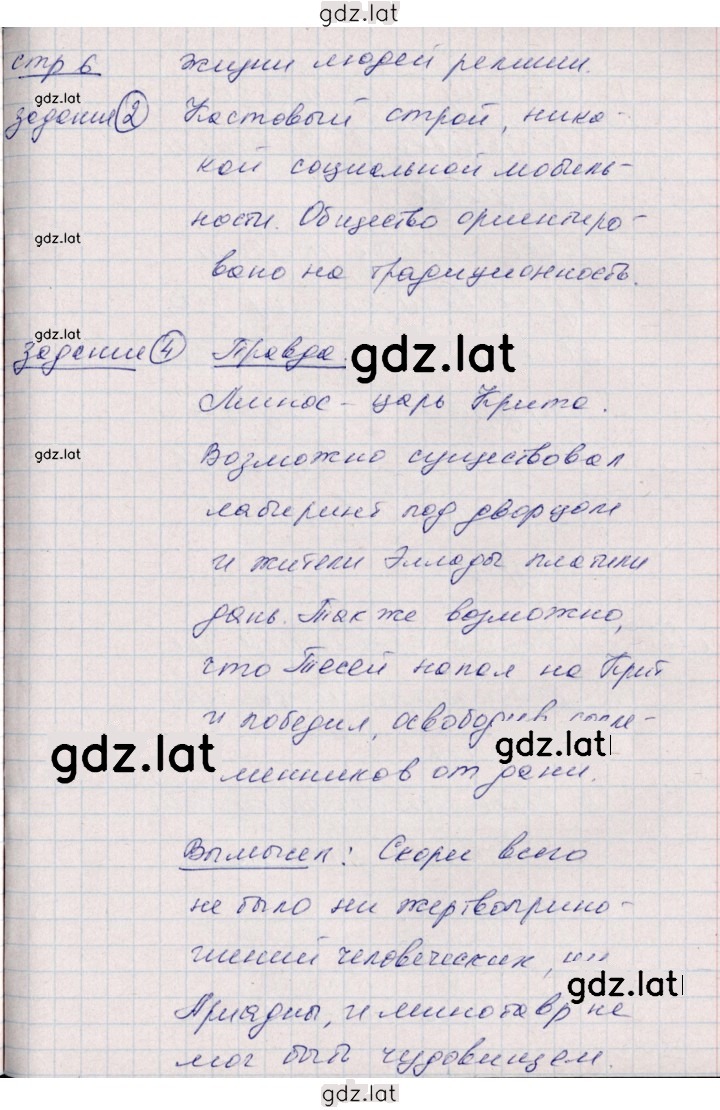 gdz.lat
стр 6 жизни людей религии.
gdz.lat
задание 2 Кастовый строй, ника-
кой социальной мобиль-
ности. Общество ориентиро-
gdz.lat
вано на традиционность.
gdz.lat
задание 4 Правда.
gdz.lat
Минос - царь Крита.
gdz.lat
Возможно существовал
лабиринт под дворцом
и жители Эллады платили
дань. Также возможно,
что Тесей напал на Крит
и победил, освободив
gdz.lat
gdz.lat
менников от дани.
Вымысел: Скорее всего
не было ни жертвоприно-
шений человеческих, ни
gdz.lat
Ариадны, и минотавр не
мог быть чудовищем.
gdz.lat